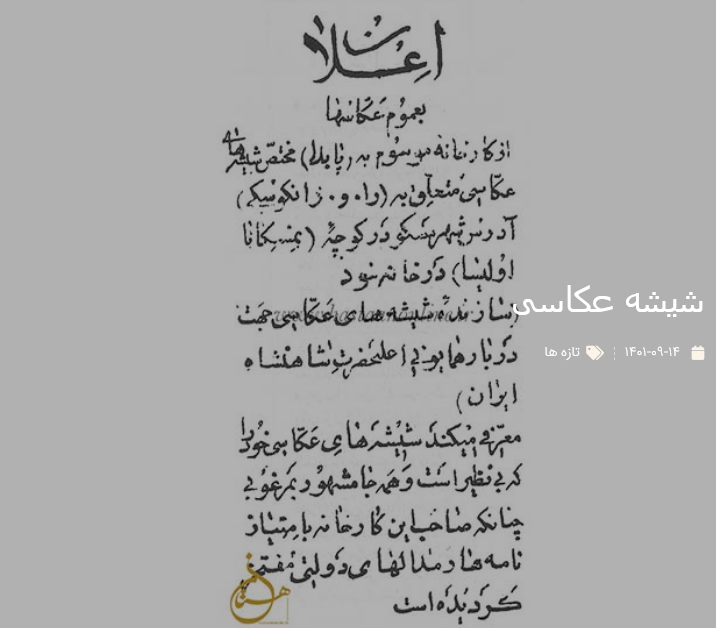 اعلان
بعموم عکاسها
از کارخانه موسوم به (پابدا) مختص شیشه‌های
عکاسی متعلق به (را. و. زانکوسکی)
آدرس شهر مسکو در کوچه (
) در خانه خود
(سازنده شیشه های عکاسی جهت
دربار همایونی اعلیحضرت شاهنشاه
ایران)
معرفی میکند شیشه های عکاسی خود را
که بی نظیر است و همه جا مشهور بمرغوبی
چنانکه صاحب این کارخانه با متیاز
نامه ها و مدالهای دولتی مفتخر
گردیده است
شیشه عکاسی
۱۴۰۱-۰۹-۱۴ تازه ها